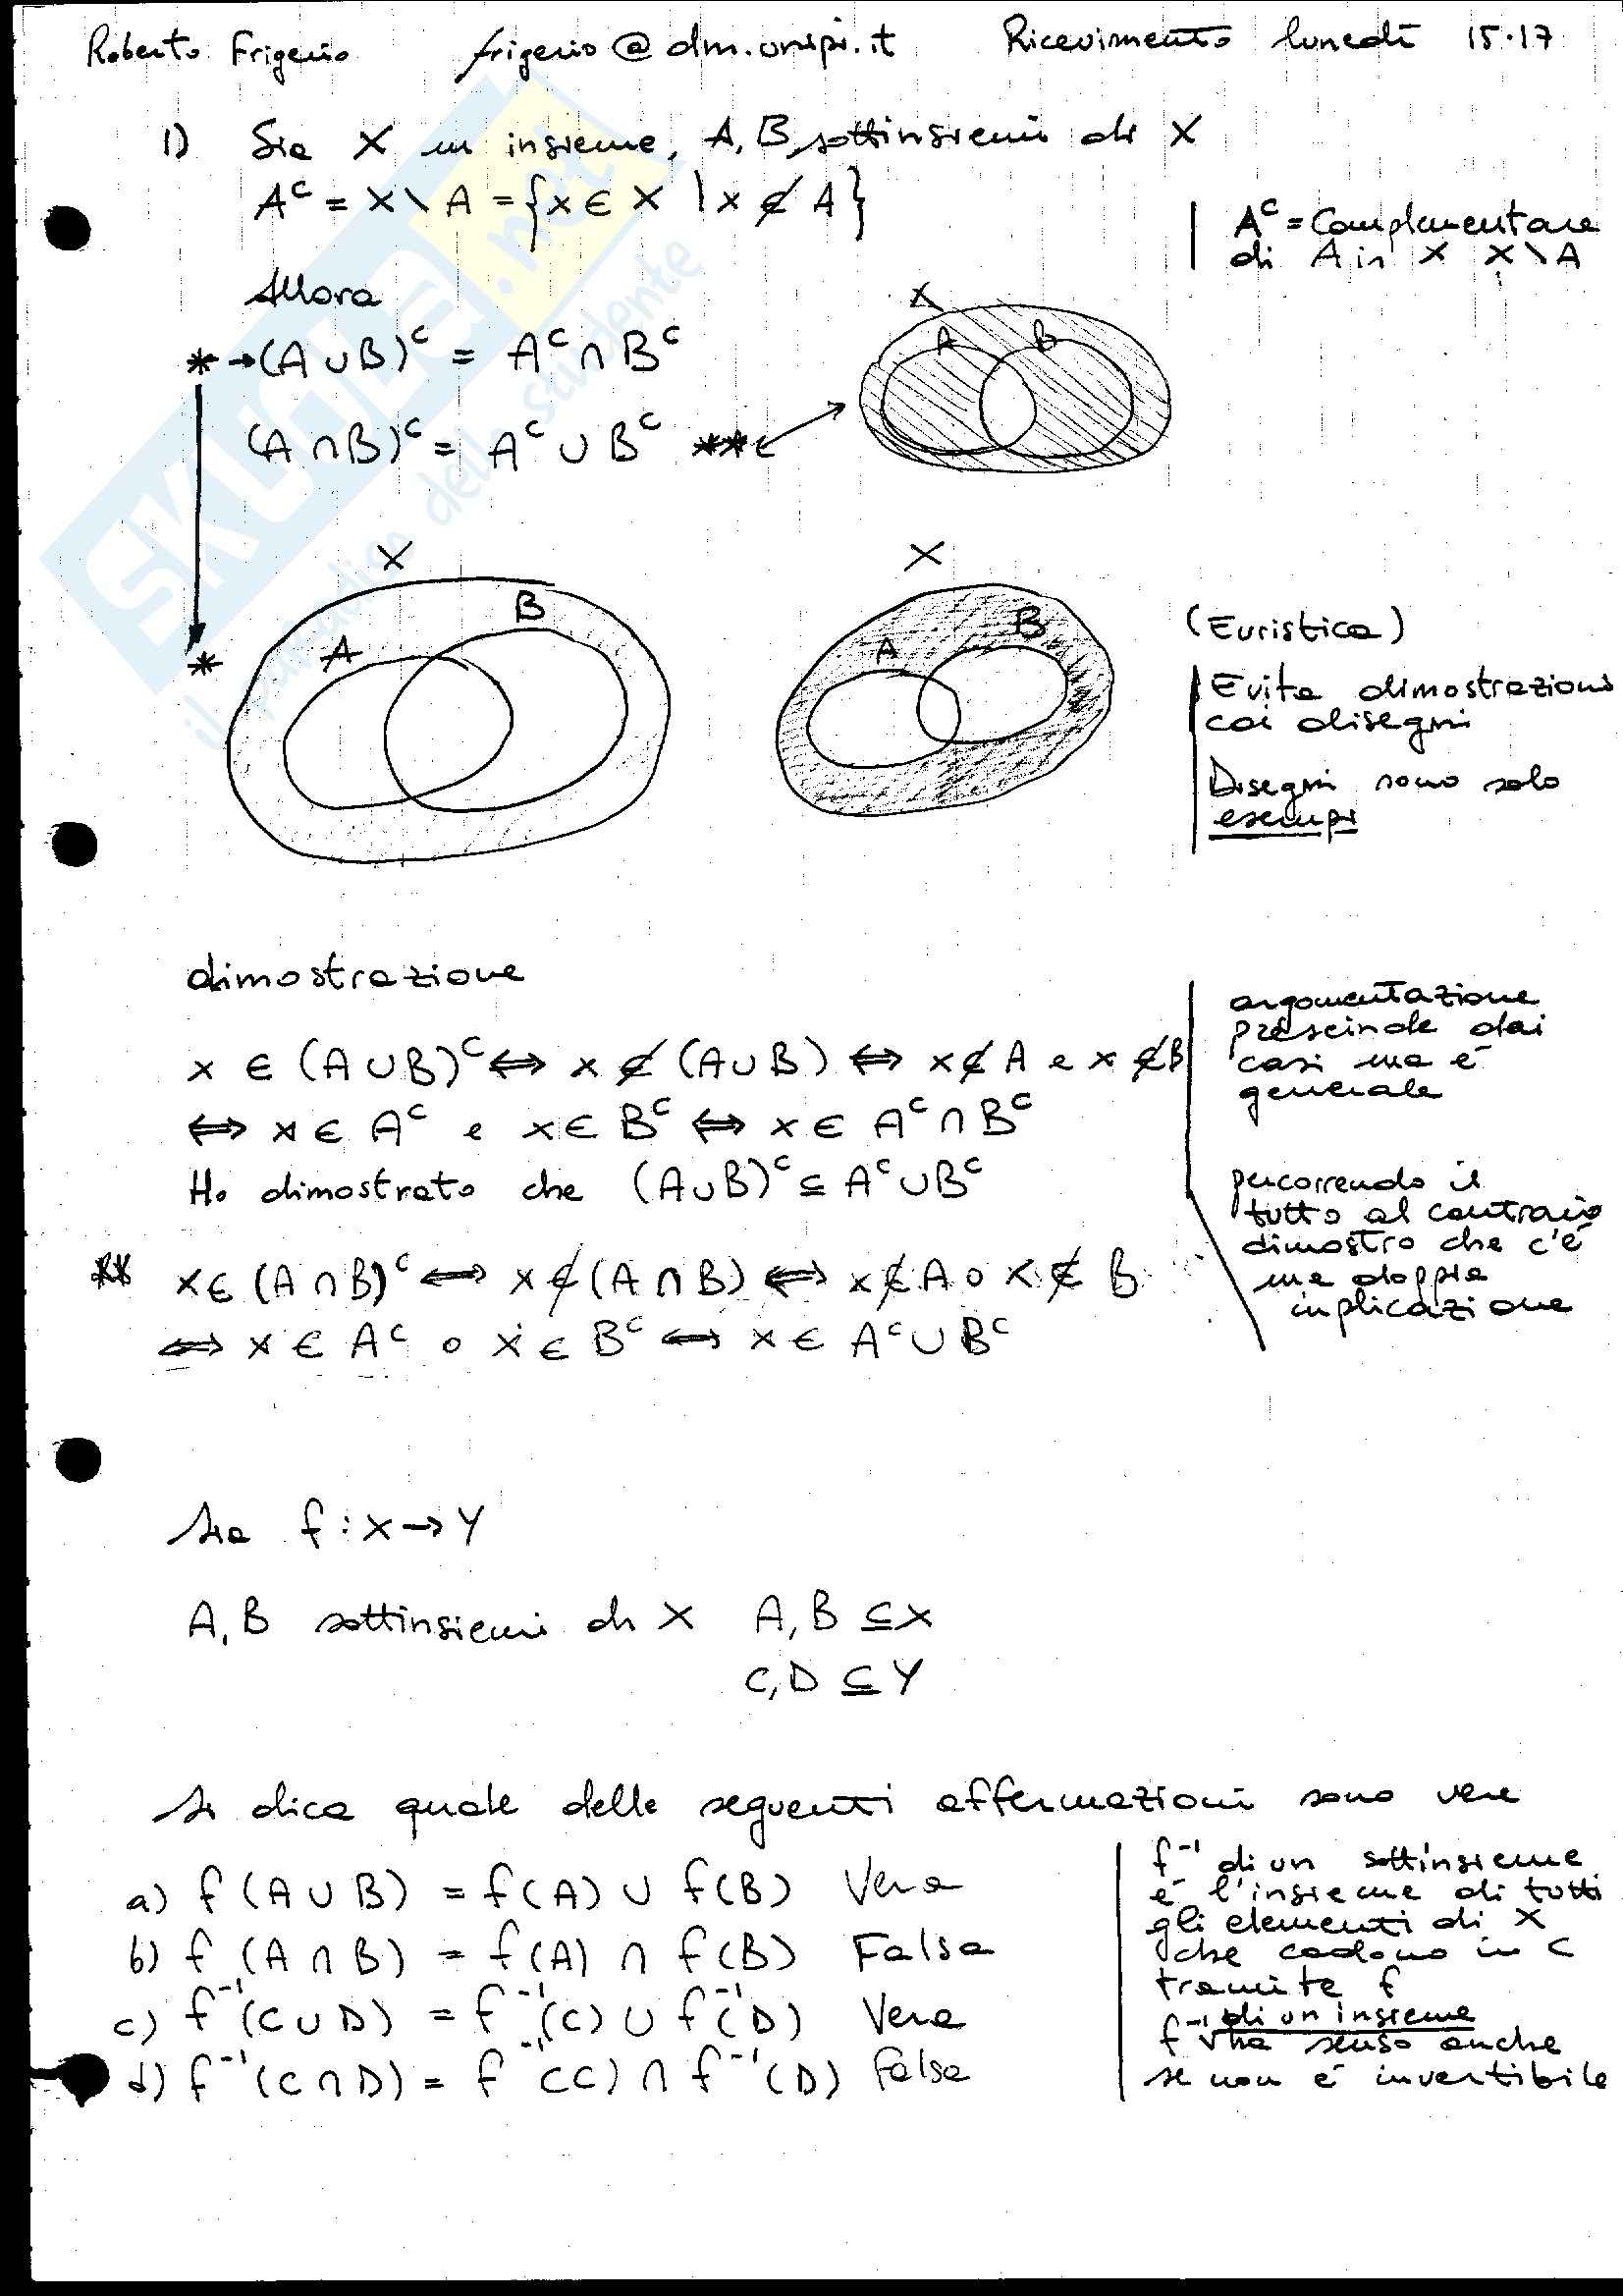 Roberto Frigerio frigerio@dm.unipi.it Ricevimento lunedì 15-17
1) Sia X un insieme, A, B sottinsiemi di X
Aᶜ = X \ A = {x ∈ X | x ∉ A}
Aᶜ = Complementare
di A in X X \ A
Allora
* → (A ∪ B)ᶜ = Aᶜ ∩ Bᶜ
(A ∩ B)ᶜ = Aᶜ ∪ Bᶜ **
X
A B
*
X
A B
X
A B
(Euristica)
Evita dimostrazioni
coi disegni
Disegni sono solo
esempi
dimostrazione
x ∈ (A ∪ B)ᶜ ⇔ x ∉ (A ∪ B) ⇔ x ∉ A e x ∉ B
⇔ x ∈ Aᶜ e x ∈ Bᶜ ⇔ x ∈ Aᶜ ∩ Bᶜ
Ho dimostrato che (A ∪ B)ᶜ ⊆ Aᶜ ∪ Bᶜ
** x ∈ (A ∩ B)ᶜ ⇔ x ∉ (A ∩ B) ⇔ x ∉ A o x ∉ B
⇔ x ∈ Aᶜ o x ∈ Bᶜ ⇔ x ∈ Aᶜ ∪ Bᶜ
argomentazione
prescinde dai
casi ma è
generale
percorrendo il
tutto al contrario
dimostro che c'è
una doppia
implicazione
Sia f : X → Y
A, B sottinsiemi di X A, B ⊆ X
C, D ⊆ Y
Si dica quale delle seguenti affermazioni sono vere
a) f (A ∪ B) = f(A) ∪ f(B) Vera
b) f (A ∩ B) = f(A) ∩ f(B) Falsa
c) f⁻¹(C ∪ D) = f⁻¹(C) ∪ f⁻¹(D) Vera
d) f⁻¹(C ∩ D) = f⁻¹(C) ∩ f⁻¹(D) Falsa
f⁻¹ di un sottinsieme
è l'insieme di tutti
gli elementi di X
che cadono in C
tramite f
f⁻¹ di un insieme
ha senso anche
se non è invertibile
SKUOLA.net
il paradiso dello studente